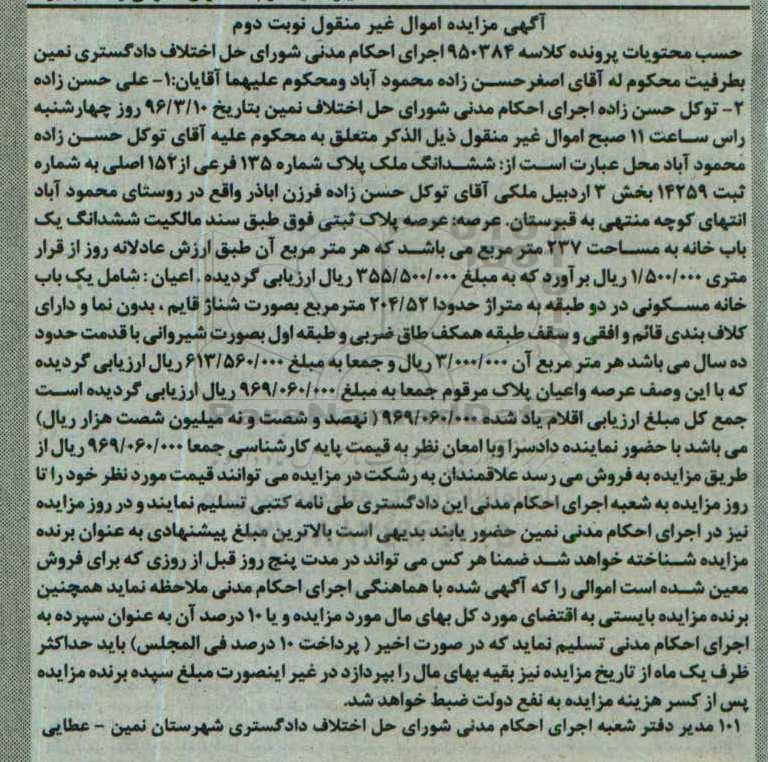 آگهی مزایده اموال غیر منقول نوبت دوم
حسب محتویات پرونده کلاسه ۹۵۰۳۸۴ اجرای احکام مدنی شورای حل اختلاف دادگستری نمین
بطرفیت محکوم له آقای اصغرحسن زاده محمود آباد ومحکوم علیهما آقایان:۱- علی حسن زاده
۲- توکل حسن زاده اجرای احکام مدنی شورای حل اختلاف نمین بتاریخ ۹۶/۳/۱۰ روز چهارشنبه
راس ساعت ۱۱ صبح اموال غیر منقول ذیل الذکر متعلق به محکوم علیه آقای توکل حسن زاده
محمود آباد محل عبارت است از: ششدانگ ملک پلاک شماره ۱۳۵ فرعی از ۱۵۲ اصلی به شماره
ثبت ۱۴۲۵۹ بخش ۳ اردبیل ملکی آقای توکل حسن زاده فرزن اباذر واقع در روستای محمود آباد
انتهای کوچه منتهی به قبرستان. عرصه: عرصه پلاک ثبتی فوق طبق سند مالکیت ششدانگ یک
باب خانه به مساحت ۲۳۷ متر مربع می باشد که هر متر مربع آن طبق ارزش عادلانه روز از قرار
متری ۱/۵۰۰/۰۰۰ ریال برآورد که به مبلغ ۳۵۵/۵۰۰/۰۰۰ ریال ارزیابی گردیده . اعیان : شامل یک باب
خانه مسکونی در دو طبقه به متراژ حدودا ۲۰۴/۵۲ مترمربع بصورت شناژ قایم ، بدون نما و دارای
کلاف بندی قائم و افقی و سقف طبقه همکف طاق ضربی و طبقه اول بصورت شیروانی با قدمت حدود
ده سال می باشد هر متر مربع آن ۳/۰۰۰/۰۰۰ ریال و جمعا به مبلغ ۶۱۳/۵۶۰/۰۰۰ ریال ارزیابی گردیده
که با این وصف عرصه واعیان پلاک مرقوم جمعا به مبلغ ۹۶۹/۰۶۰/۰۰۰ ریال ارزیابی گردیده است
جمع کل مبلغ ارزیابی اقلام یاد شده ۹۶۹/۰۶۰/۰۰۰ ( نهصد و شصت و نه میلیون شصت هزار ریال)
می باشد با حضور نماینده دادسرا وبا امعان نظر به قیمت پایه کارشناسی جمعا ۹۶۹/۰۶۰/۰۰۰ ریال از
طریق مزایده به فروش می رسد علاقمندان به رشکت در مزایده می توانند قیمت مورد نظر خود را تا
روز مزایده به شعبه اجرای احکام مدنی این دادگستری طی نامه کتبی تسلیم نمایند و در روز مزایده
نیز در اجرای احکام مدنی نمین حضور یابند بدیهی است بالاترین مبلغ پیشنهادی به عنوان برنده
مزایده شناخته خواهد شد ضمنا هر کس می تواند در مدت پنج روز قبل از روزی که برای فروش
معین شده است اموالی را که آگهی شده با هماهنگی اجرای احکام مدنی ملاحظه نماید همچنین
برنده مزایده بایستی به اقتضای مورد کل بهای مال مورد مزایده و یا ۱۰ درصد آن به عنوان سپرده به
اجرای احکام مدنی تسلیم نماید که در صورت اخیر ( پرداخت ۱۰ درصد فی المجلس) باید حداکثر
ظرف یک ماه از تاریخ مزایده نیز بقیه بهای مال را بپردازد در غیر اینصورت مبلغ سپده برنده مزایده
پس از کسر هزینه مزایده به نفع دولت ضبط خواهد شد.
۱۰۱ مدیر دفتر شعبه اجرای احکام مدنی شورای حل اختلاف دادگستری شهرستان نمین - عطایی